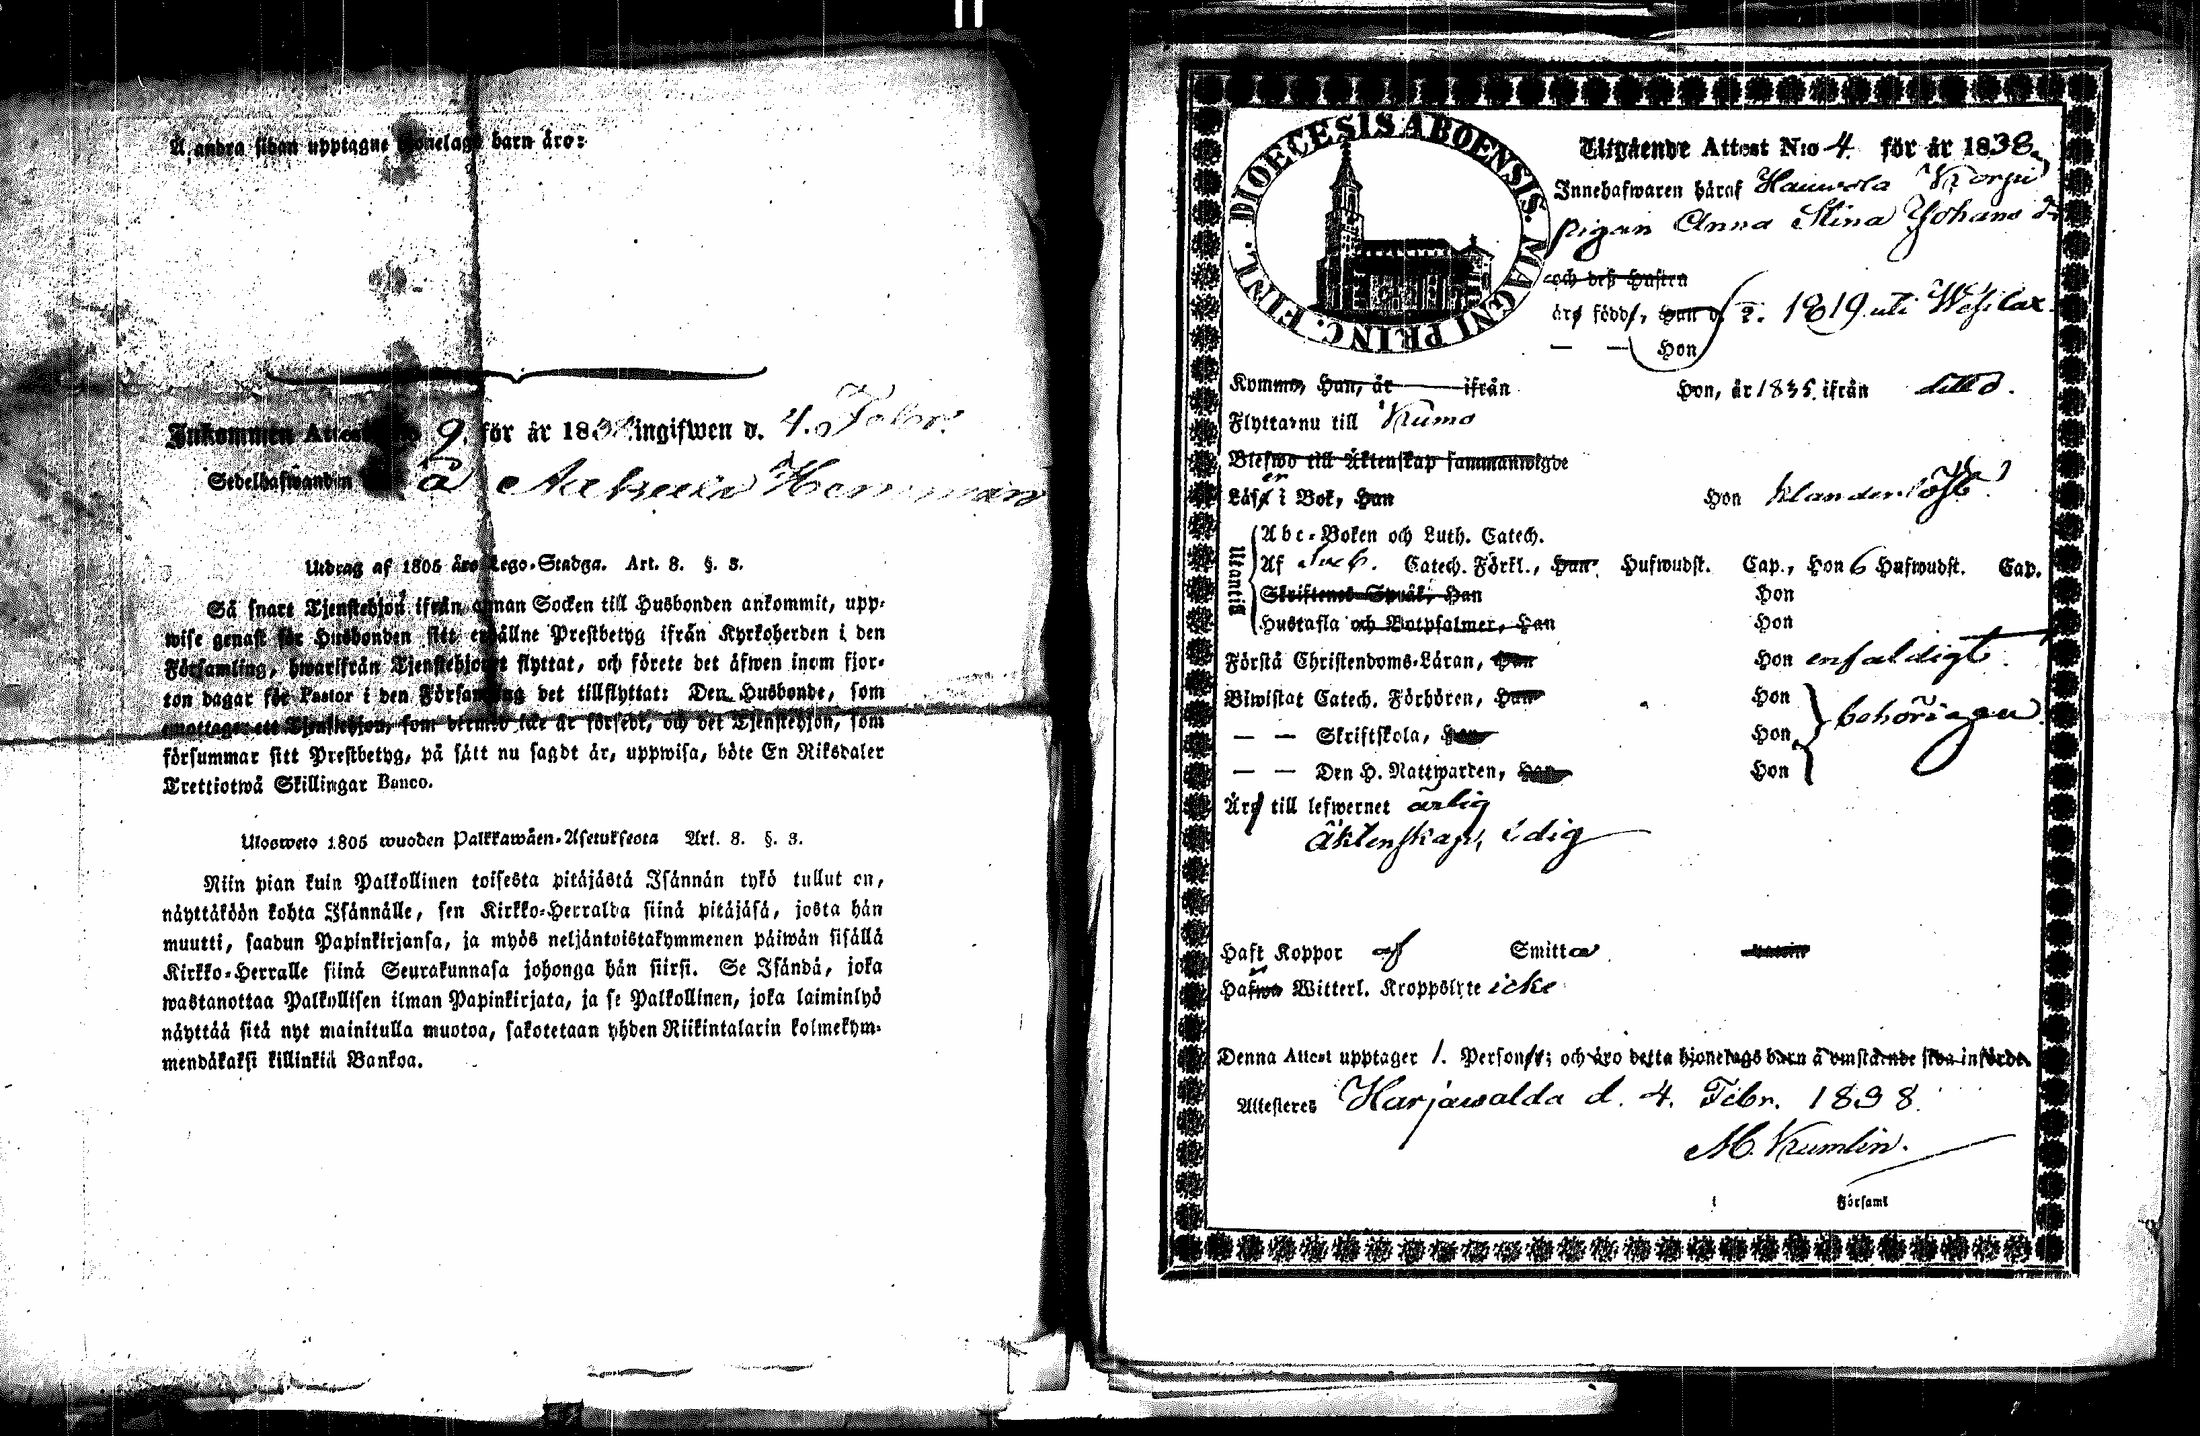 Å andra sidan upptagne hjonelags barn äro:
Inkommen Attest No 9. för år 1838. ingifwen d. 4. Febr.
Sedelhafwanden å Hemman
Utdrag af 1805 års Lego-Stadga. Art. 8. §. 3.
Så snart Tjenstehjon ifrån annan Socken till Husbonden ankommit, upp-
wise genast för Husbonden sitt erhållne Prestbetyg ifrån Kyrkoherden i den
Församling, hwarifrån Tjenstehjonet flyttat, och förete det äfwen inom fjor-
ton dagar för Pastor i den Församling det tillflyttat: Den Husbonde, som
emottager ett Tjenstehjon, som dermed icke är försedt, och det Tjenstehjon, som
försummar sitt Prestbetyg, på sätt nu sagdt är, uppwisa, böte En Riksdaler
Trettiotwå Skillingar Banco.
Ulosweto 1805 wuoden Palkkawäen-Asetuksesta Art. 8. §. 3.
Niin pian kuin Palkollinen toisesta pitäjästä Isännän tykö tullut on,
näyttäköön kohta Isännälle, sen Kirkko-Herralda siinä pitäjäsä, josta hän
muutti, saadun Papinkirjansa, ja myös neljäntoistakymmenen päiwän sisällä
Kirkko-Herralle siinä Seurakunnasa johonga hän siirsi. Se Isändä, joka
wastanottaa Palkollisen ilman Papinkirjata, ja se Palkollinen, joka laiminlyö
näyttää sitä nyt mainitulla muotoa, sakotetaan yhden Riikintalarin kolmekym-
mendäkaksi killinkiä Bankoa.
DIOECESIS ABOENSIS. MAGNI PRINC. FINL.
Utgående Attest No 4. för år 1838,
Innehafwaren häraf Torpi
pigan Anna Stina Johans dr
och deß Hustru
äro födde, Han d. 1819 uti Wesilax.
— — Hon
Kommo, Han, år ifrån Hon, år 1835 ifrån ditto.
Flyttar nu till Kumo
Blefwo till Äktenskap sammanwigde
Läser i Bok, Han Hon klanderlöst
Utantill
Abc-Boken och Luth. Catech.
Af Sveb. Catech. Förkl., Han Hufwudst. Cap., Hon 6 Hufwudst. Cap.
Skriftenes Språk, Han Hon
Hustafla och Botpsalmer, Han Hon
Förstå Christendoms-Läran, Han Hon enfaldigt.
Biwistat Catech. Förhören, Han Hon
— — Skriftskola, Han Hon behörigen
— — Den H. Nattwarden, Han Hon
Äro till lefwernet ärlig
Äktenskap, ledig
Haft Koppor af Smitta
Hafwa Witterl. Kroppslyte icke
Denna Attest upptager 1. Person; och äro detta hjonelags barn å omstående sida införde.
Attesteres Harjawalda d. 4. Febr. 1838.
M. Kumlin.
i Församl